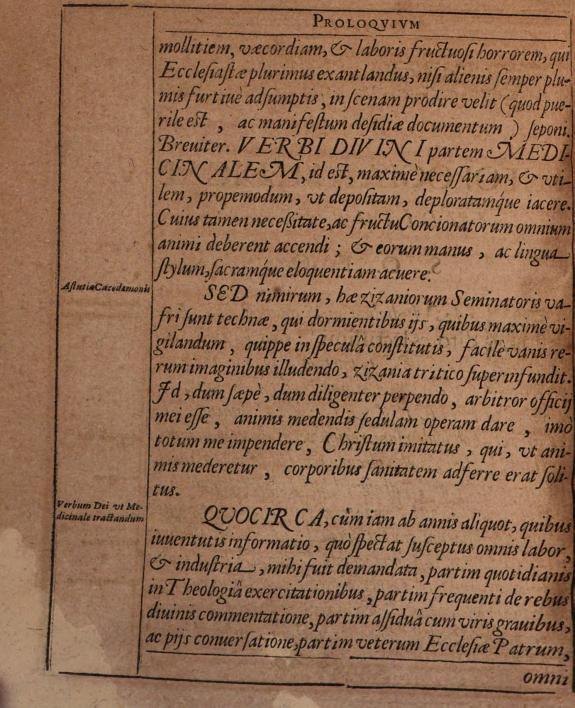 PROLOQVIVM
mollitiem, væcordiam, & laboris fructuosi horrorem, qui
Ecclesiastæ plurimus exantlandus, nisi alienis semper plu-
mis furtiuè adsumptis, in scenam prodire velit (quod pue-
rile est, ac manifestum desidiæ documentum) seponi.
Breuiter. VERBI DIVINI partem MEDI-
CINALEM, id est, maximè necessariam, & vti-
lem, propemodum, vt depositam, deploratamque iacere.
Cuius tamen necessitate, ac fructu Concionatorum omnium
animi deberent accendi; & eorum manus, ac lingua
stylum, sacramque eloquentiam acuere.
Astutiæ Cacodæmonis
SED nimirum, hæ zizaniorum Seminatoris va-
fri sunt technæ, qui dormientibus ijs, quibus maximè vi-
gilandum, quippe in speculâ constitutis, facile vanis re-
rum imaginibus illudendo, zizania tritico superinfundit.
Id, dum sæpè, dum diligenter perpendo, arbitror officij
mei esse, animis medendis sedulam operam dare, imò
totum me impendere, Christum imitatus, qui, vt ani-
mis mederetur, corporibus sanitatem adferre erat soli-
tus.
Verbum Dei vt Me-
dicinale tractandum
QUOCIRCA, cùm iam ab annis aliquot, quibus
iuuentutis informatio, quò spectat susceptus omnis labor,
& industria, mihi fuit demandata, partim quotidianis
in Theologiâ exercitationibus, partim frequenti de rebus
diuinis commentatione, partim assiduâ cum viris grauibus,
ac pijs conuersatione, partim veterum Ecclesiæ Patrum,
omni